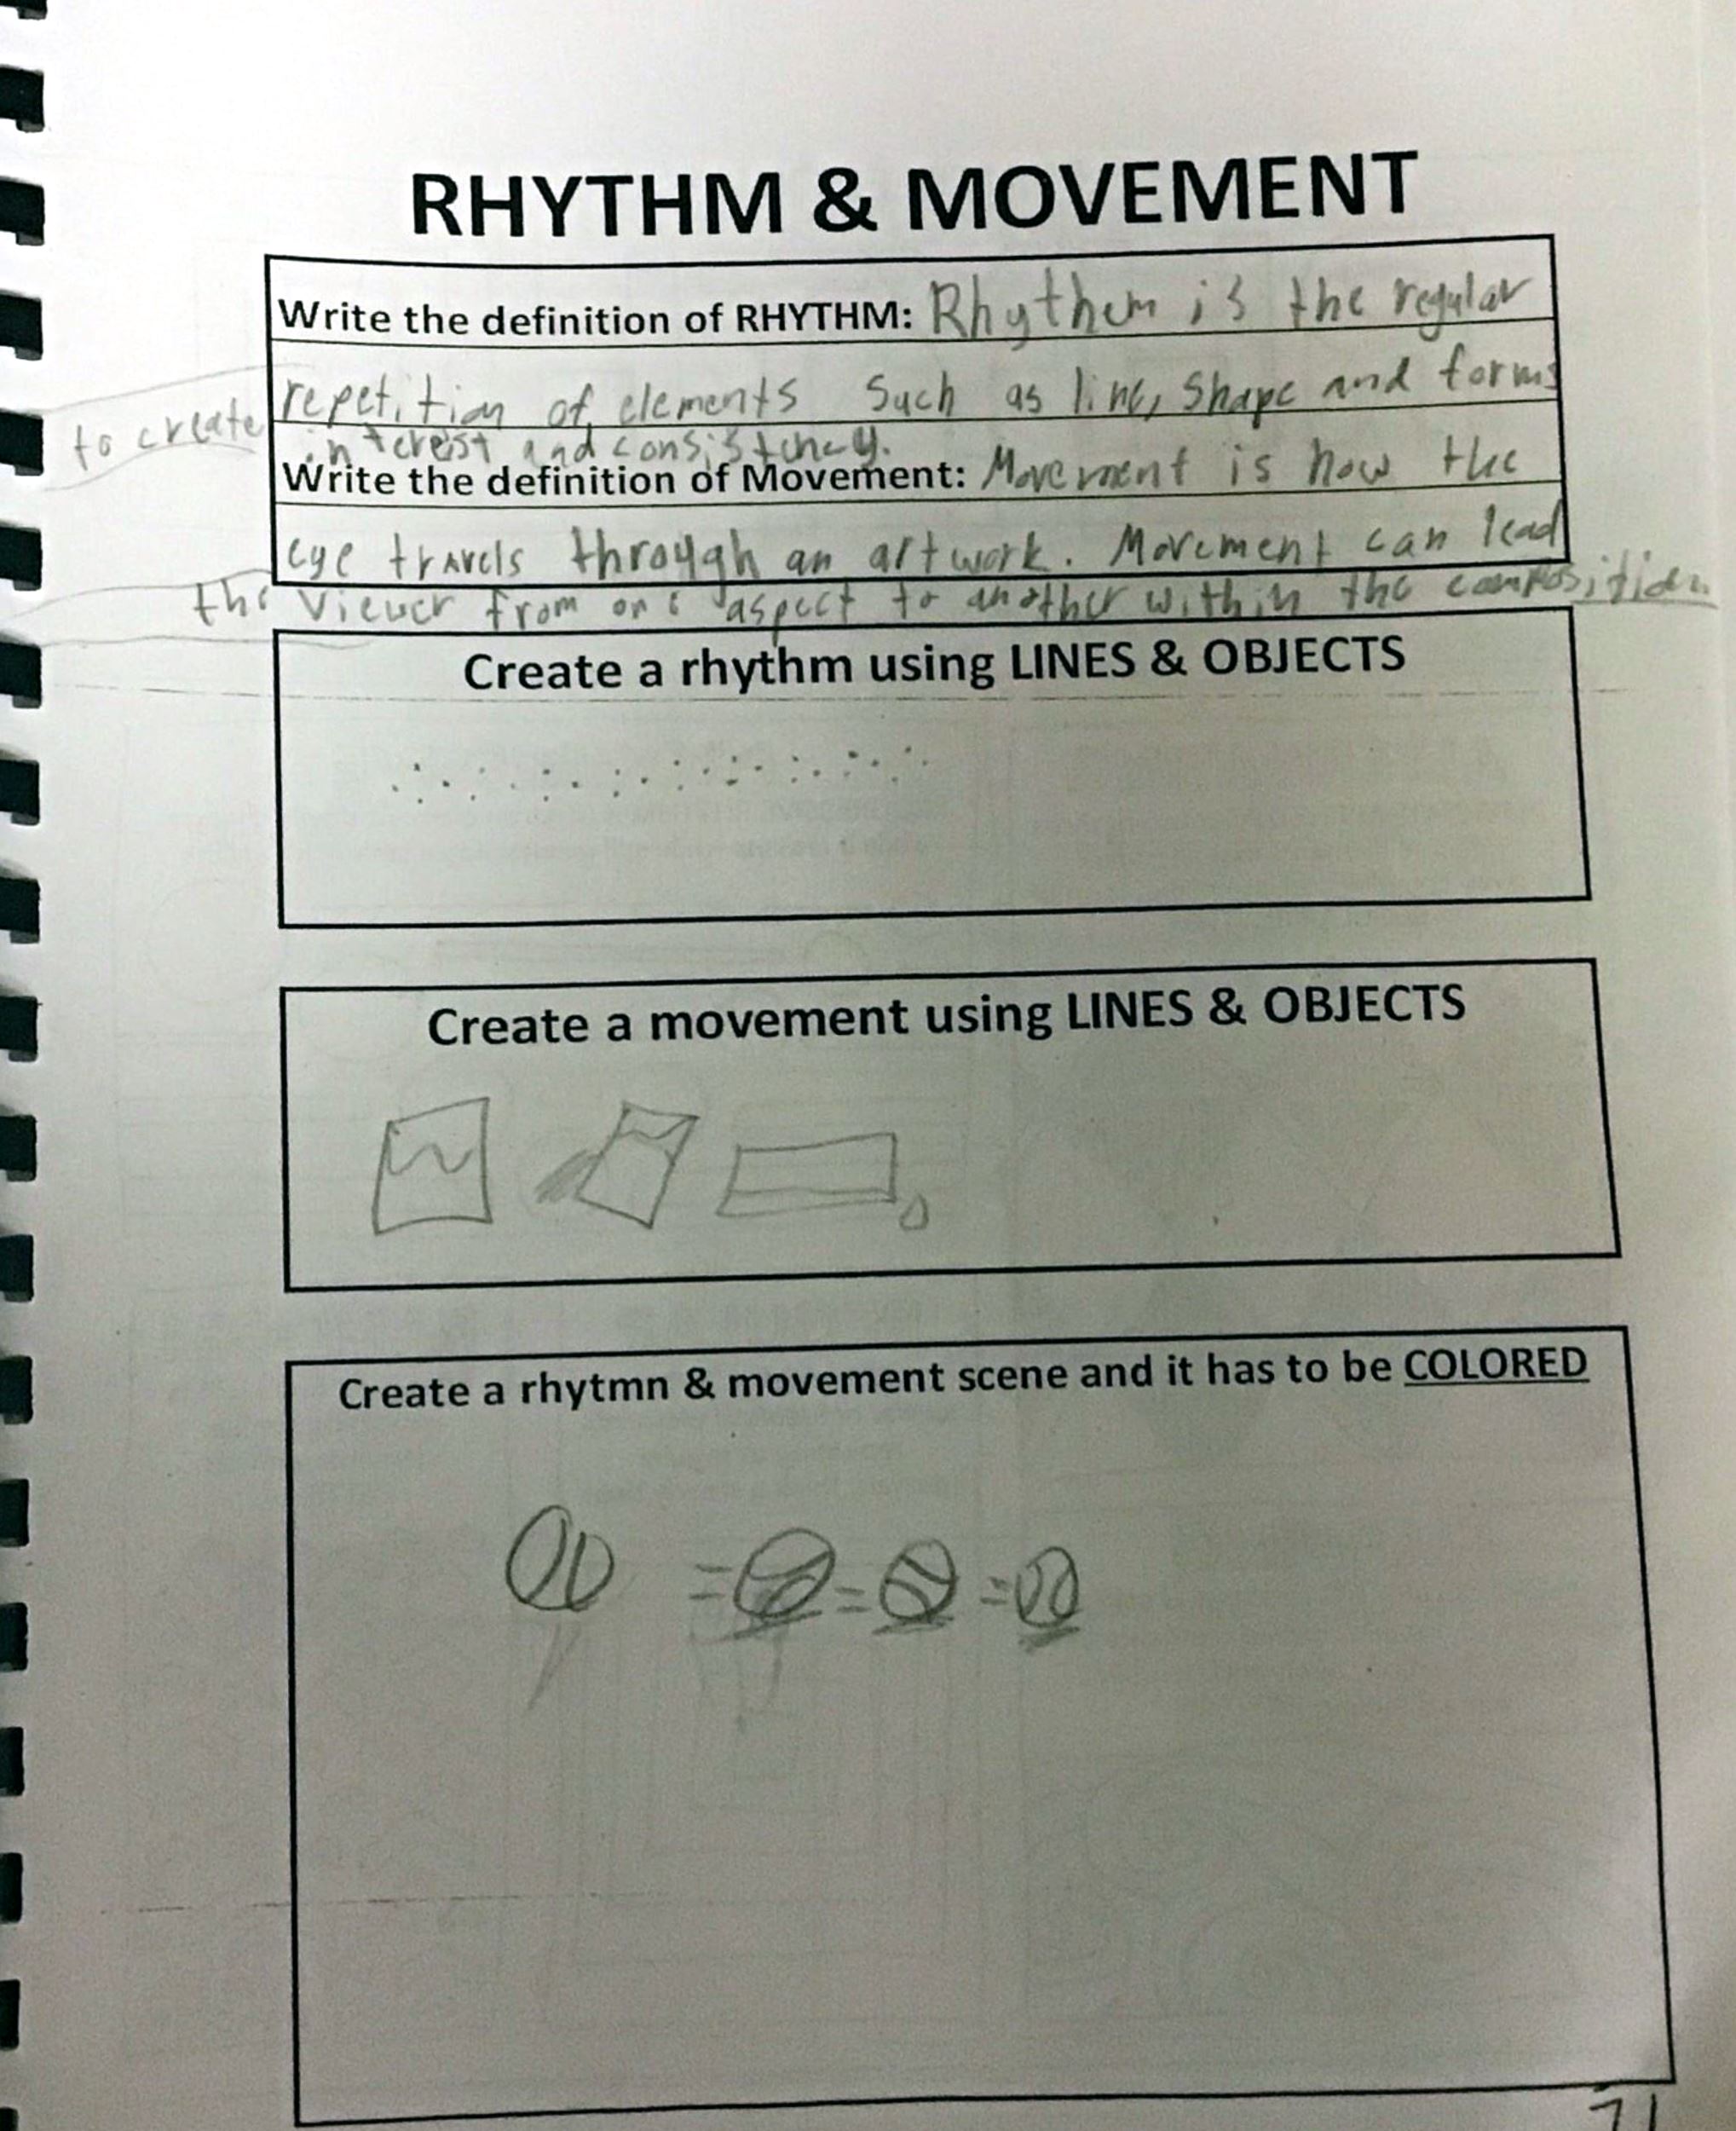 RHYTHM & MOVEMENT
Write the definition of RHYTHM: Rhythem is the regular
repetition of elements such as line, shape and forms
to create interest and consistency.
Write the definition of Movement: Movement is how the
eye travels through an artwork. Movement can lead
the viewer from one aspect to another within the composition.
Create a rhythm using LINES & OBJECTS
Create a movement using LINES & OBJECTS
Create a rhytmn & movement scene and it has to be COLORED
71